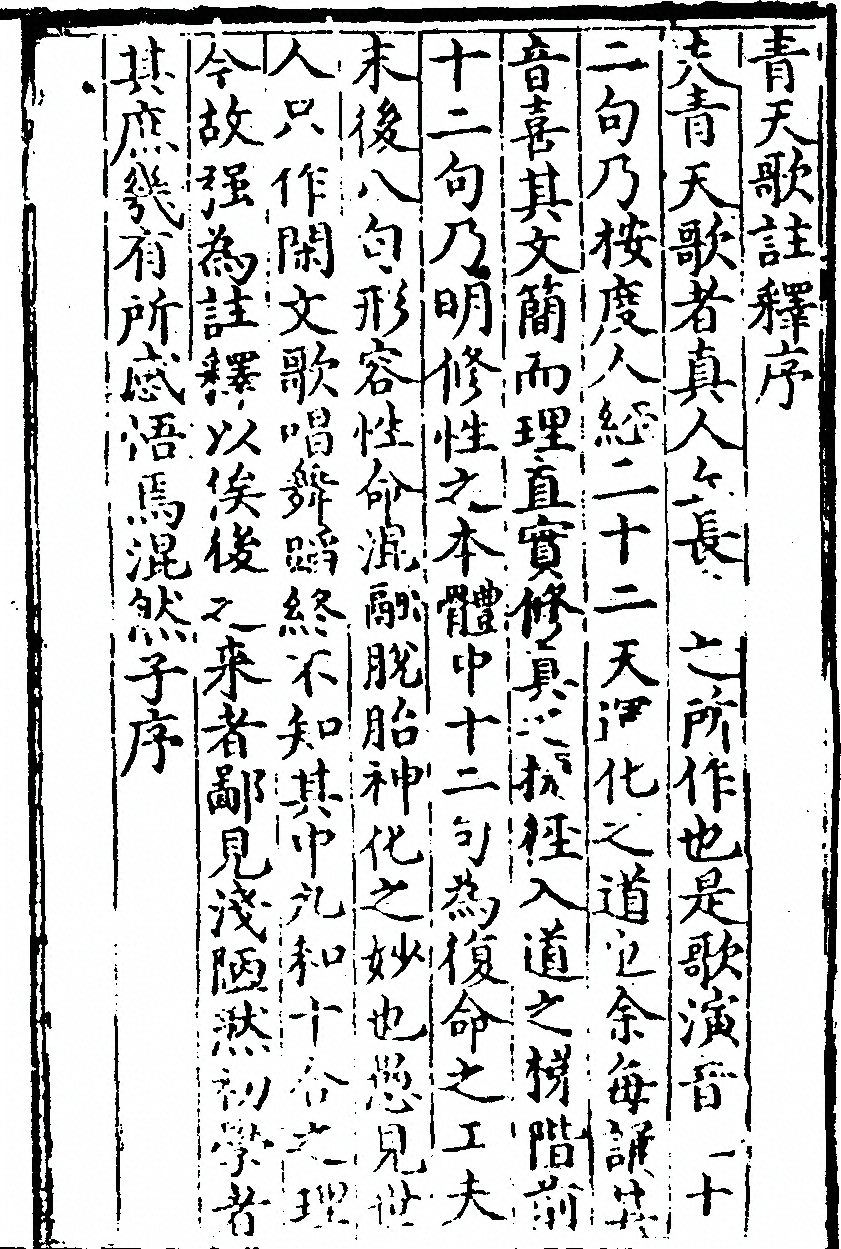 青天歌註釋序
夫青天歌者真人丘長之所作也是歌演音一十
二句乃桉度人經二十二天運化之道也余每誦其
音喜其文簡而理直實修真之捷徑入道之梯階前
十二句乃明修性之本體中十二句為復命之工夫
末後八句形容性命混融脫胎神化之妙也愚見世
人只作閑文歌唱舞蹈終不知其中九和十合之理
今故强為註釋以俟後之来者鄙見淺陋然初學者
其庶幾有所感悟焉混然子序